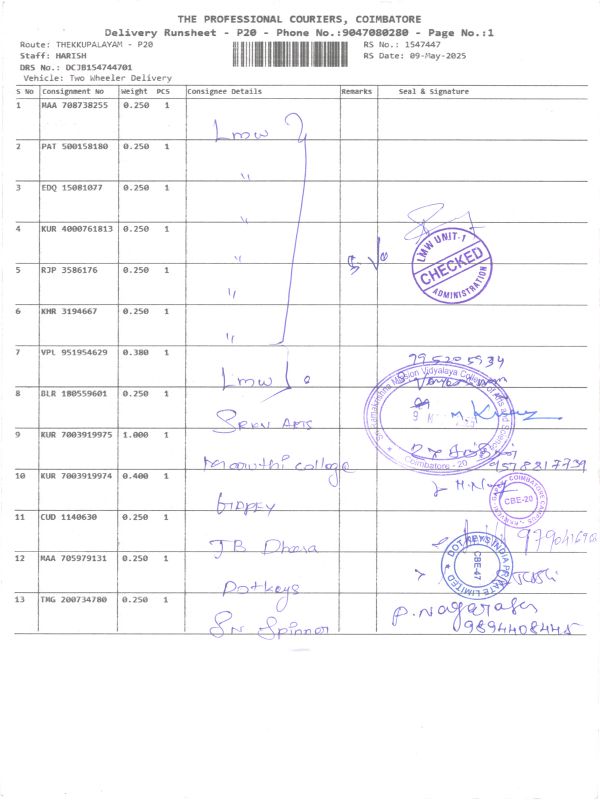 THE PROFESSIONAL COURIERS, COIMBATORE
Delivery Runsheet - P20 - Phone No.:9047080280 - Page No.:1
Route: THEKKUPALAYAM - P20 RS No.: 1547447
Staff: HARISH RS Date: 09-May-2025
DRS No.: DCJB154744701
Vehicle: Two Wheeler Delivery
S No Consignment No Weight PCS Consignee Details Remarks Seal & Signature
1 MAA 708738255 0.250 1
Lmw
2 PAT 500158180 0.250 1
"
3 EDQ 15081077 0.250 1
"
4 KUR 4000761813 0.250 1
"
LMW UNIT-1
CHECKED
ADMINISTRATION
5 RJP 3586176 0.250 1
"
6 KMR 3194667 0.250 1
"
7 VPL 951954629 0.380 1
Lmw
8 BLR 180559601 0.250 1
SRKV ARTS
Sri Ramakrishna Mission Vidyalaya College of Arts and Science
Coimbatore - 20
9 KUR 7003919975 1.000 1
college
9578817739
10 KUR 7003919974 0.400 1
COIMBATORE CAMPUS
CBE-20
11 CUD 1140630 0.250 1
JB Dhara
12 MAA 705979131 0.250 1
Dotkeys
DOT KEYS INDIA PRIVATE LIMITED
CBE-47
13 TMG 200734780 0.250 1
SN Spinner
P. Nagaraj
9894408445